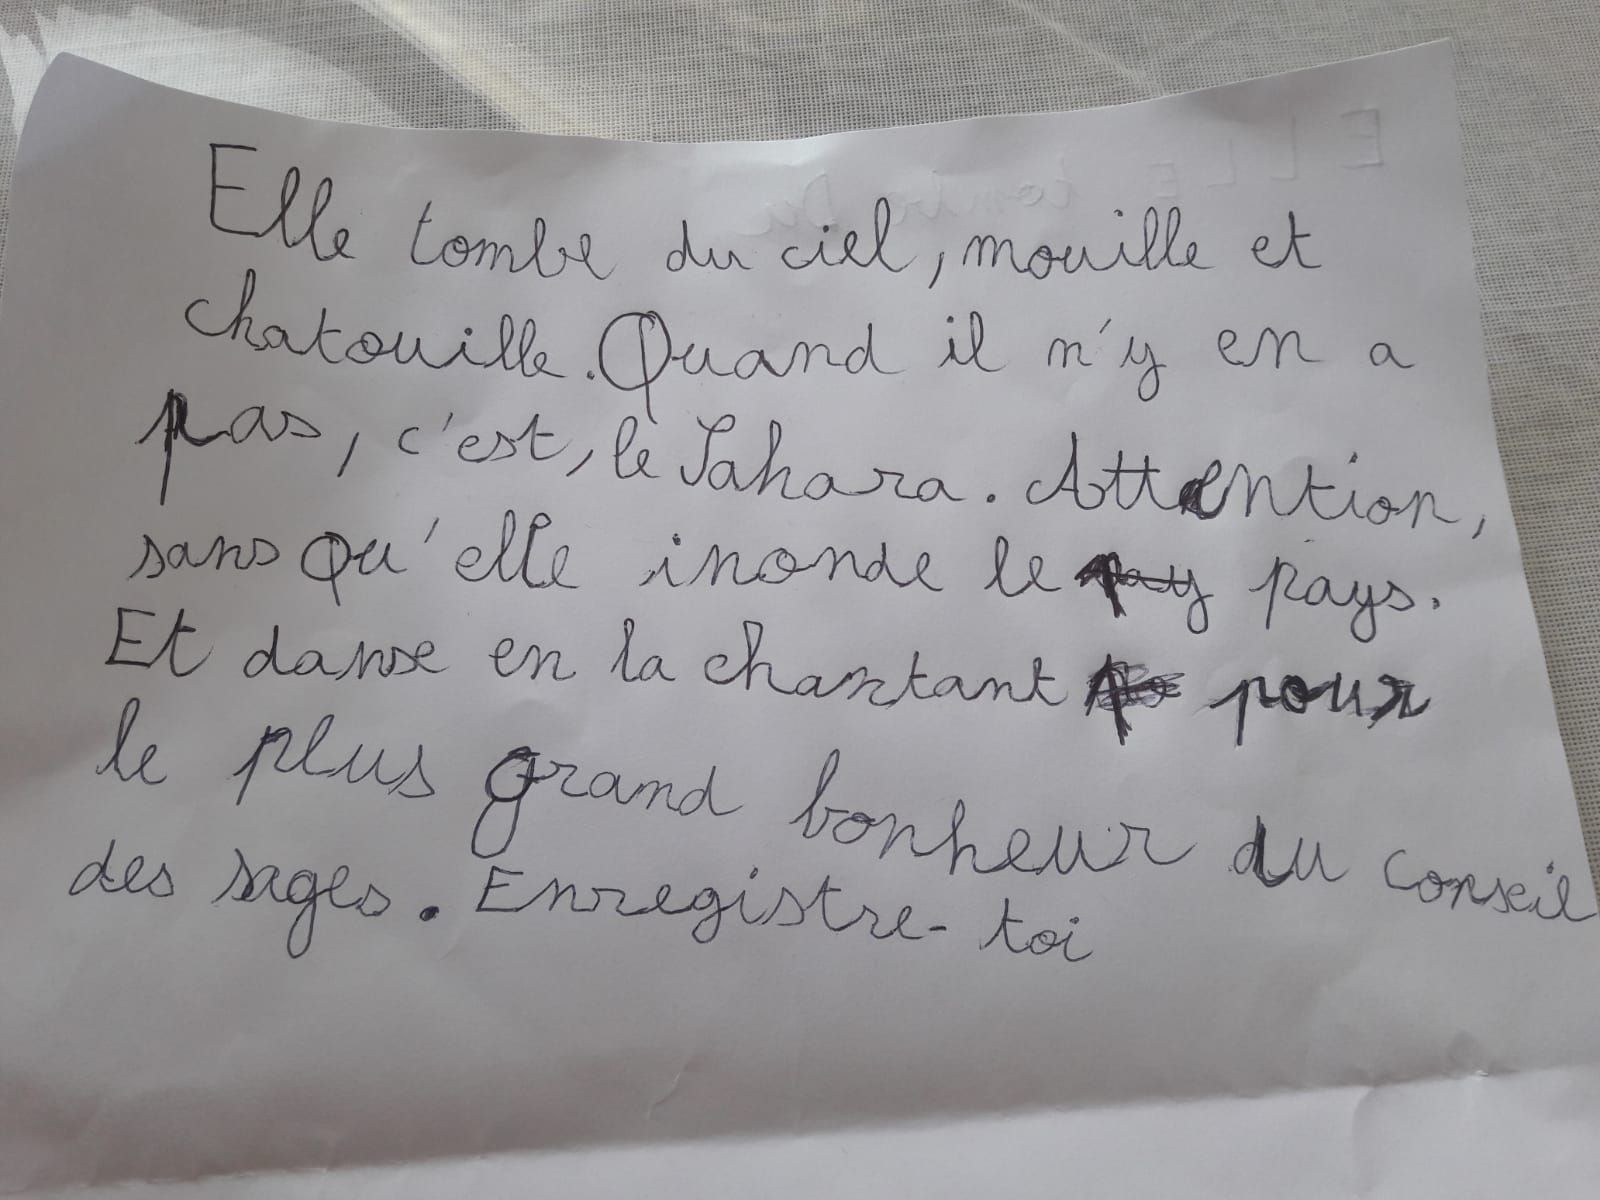 Elle tombe du ciel, mouille et
chatouille. Quand il n'y en a
pas, c'est, le Sahara. Attention,
sans qu'elle inonde le pays.
Et danse en la chantant pour
le plus grand bonheur du conseil
des sages. Enregistre-toi